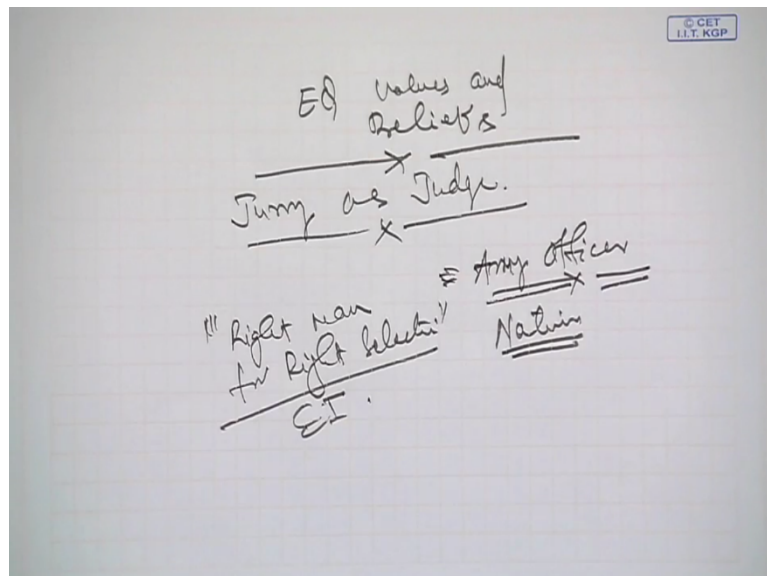 © CET
I.I.T. KGP
EQ values and
Beliefs
as Judge.
Army Officer
Nation
"Right man
for Right Selecti"
EI.